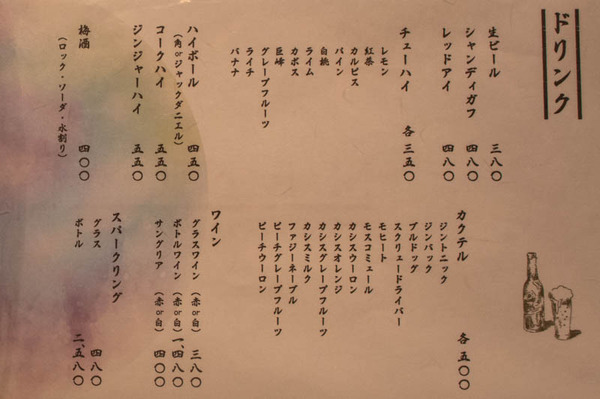 ドリンク
生ビール 三八〇
シャンディガフ 四八〇
レッドアイ 四八〇
チューハイ 各三五〇
レモン
紅茶
カルピス
パイン
白桃
ライム
カボス
巨峰
グレープフルーツ
ライチ
バナナ
ハイボール 四五〇
（角orジャックダニエル）
コークハイ 五五〇
ジンジャーハイ 五五〇
梅酒 四〇〇
（ロック・ソーダ・水割り）
カクテル 各五〇〇
ジントニック
ジンバック
ブルドッグ
スクリュードライバー
モヒート
モスコミュール
カシスウーロン
カシスオレンジ
カシスグレープフルーツ
カシスミルク
ファジーネーブル
ピーチグレープフルーツ
ピーチウーロン
ワイン
グラスワイン（赤or白） 三八〇
ボトルワイン（赤or白） 一、四八〇
サングリア（赤or白） 四〇〇
スパークリング
グラス 四八〇
ボトル 二、五八〇